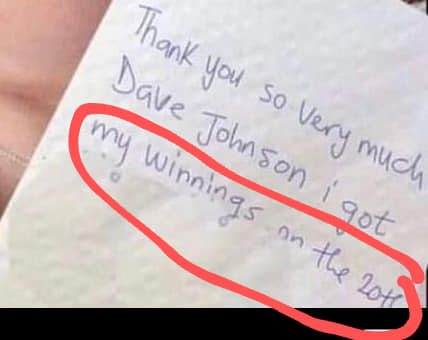 Thank you so very much
Dave Johnson i got
my winnings on the 20th